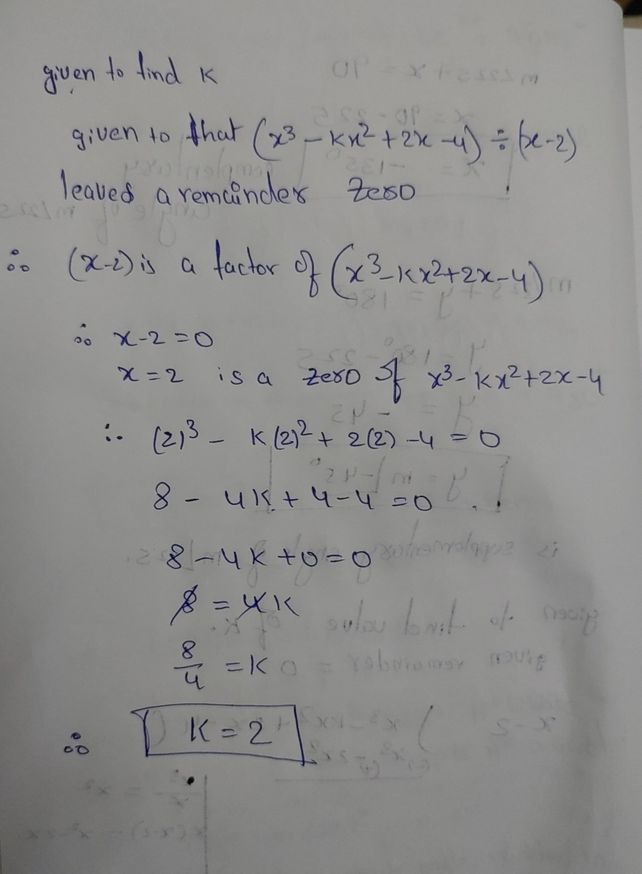 given to find K
given to that (x³ - Kx² + 2x - 4) ÷ (x-2)
leaves a remainder zero
∴ (x-2) is a factor of (x³ - Kx² + 2x - 4)
∴ x - 2 = 0
x = 2 is a zero of x³ - Kx² + 2x - 4
∴ (2)³ - K(2)² + 2(2) - 4 = 0
8 - 4K + 4 - 4 = 0
8 - 4K + 0 = 0
8 = 4K
8/4 = K
∴ K = 2